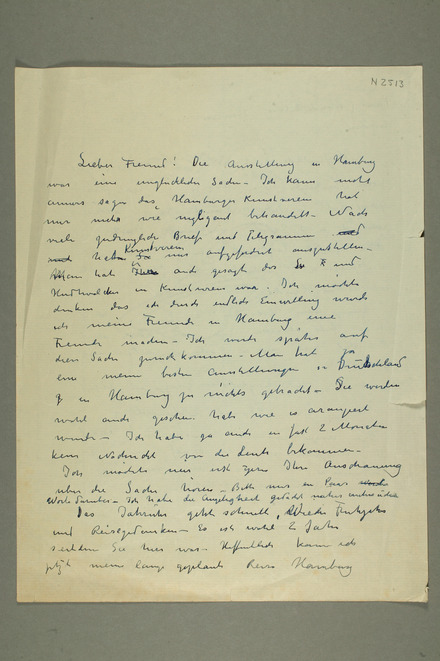 N 2513
Lieber Freund! Die Ausstellung in Hamburg
war eine unglückliche Sache - Ich kann nicht
anders sagen das Hamburger Kunstverein hat
mir mehr wie negligant behandelt -
viele Briefe und Telegramme
Kunstverein mir aufgefordert auszustellen -
Man hat auch gesagt das und
in Kunstverein war. Ich möchte
denken das ich durch Einwellung würde
ich meine Freunde in Hamburg eine
Freude machen - Ich werde später auf
diese Sache zurückkommen - Man hat ja
eine meine besten Ausstellungen in Deutschland
in Hamburg zu nichts gebracht - Sie werden
wohl auch gesehen hat wie es arangiert
wurde - Ich habe ja auch in fast 2 Monaten
kein von die Leute bekommen -
Ich möchte nun erst gern Ihre Anschauung
über die Sache hören - Bitte mir ein Paar
Worte darüber - Ich habe die Angelegenheit
Das Jahr geht schnell, Wieder
und Reisegedanken - Es ist wohl 2 Jahre
seitdem Sie hier war - Hoffentlich kann ich
meine lange geplante Reise Hamburg